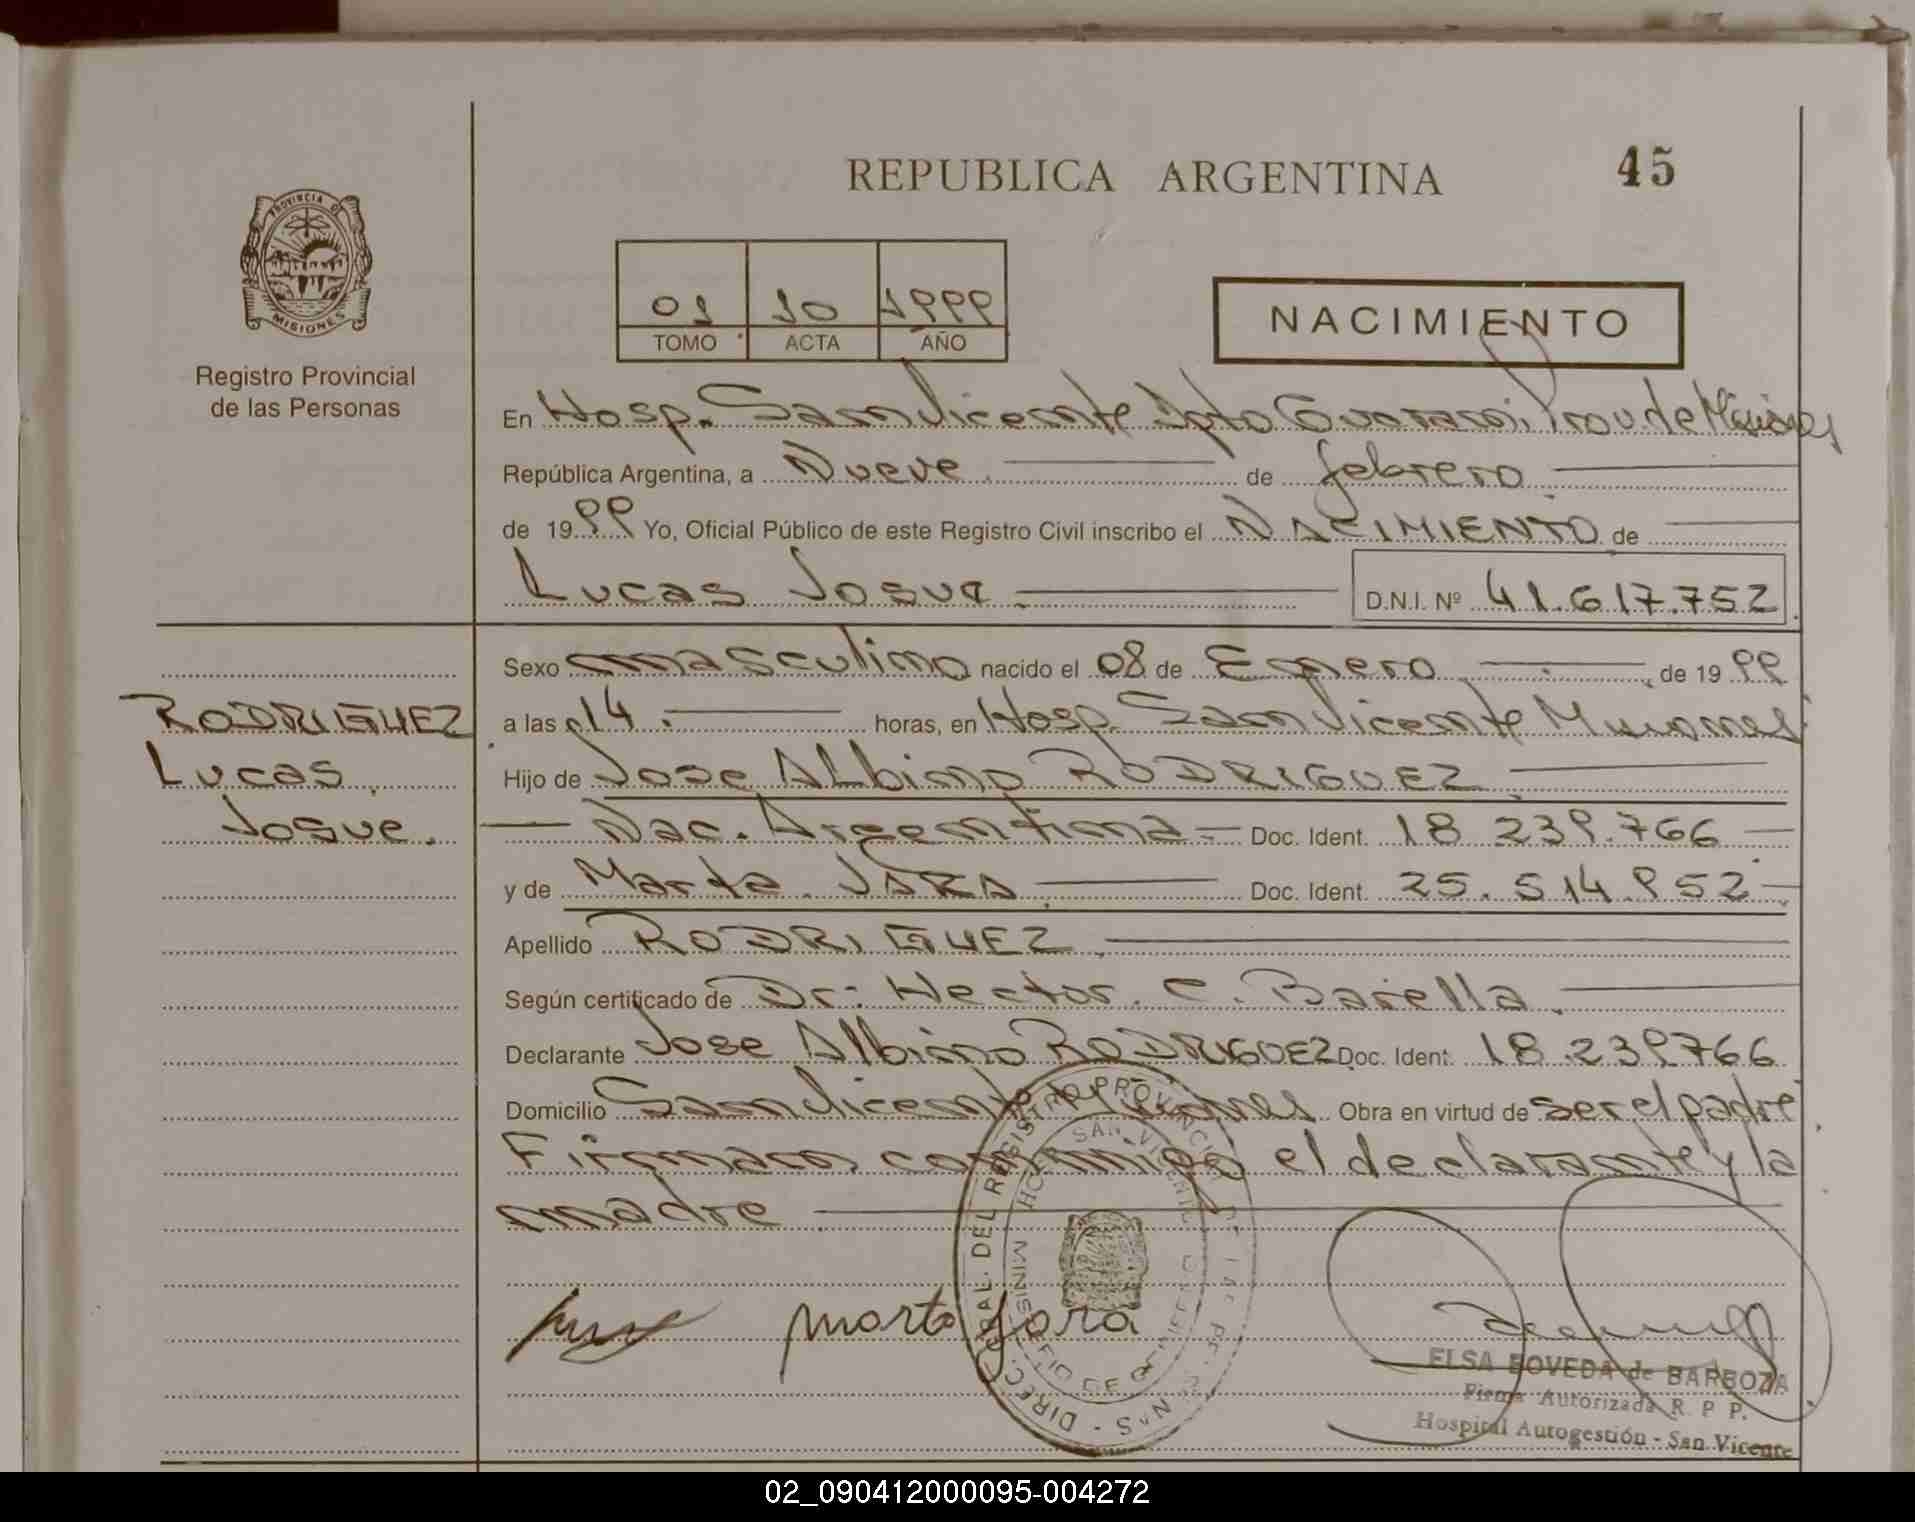 REPUBLICA ARGENTINA
45
PROVINCIA DE
MISIONES
Registro Provincial
de las Personas
01 10 1999
TOMO ACTA AÑO
NACIMIENTO
En Hosp. San Vicente Dpto Guarani, Prov. de Misiones
República Argentina, a Nueve de febrero
de 1999 Yo, Oficial Público de este Registro Civil inscribo el NACIMIENTO de
Lucas Josue D.N.I. Nº 41.617.752
Sexo masculino nacido el 08 de Enero de 1999
RODRIGUEZ
Lucas
Josue.
a las 14. horas, en Hosp. San Vicente Misiones
Hijo de Jose Albino RODRIGUEZ
Nac. Argentina Doc. Ident. 18.239.766
y de Marta JARA Doc. Ident. 25.514.952
Apellido RODRIGUEZ
Según certificado de Dr. Hector. C. Barella
Declarante Jose Albino RODRIGUEZ Doc. Ident. 18.239766
Domicilio San Vicente Misiones Obra en virtud de ser el padre
Firman conmigo el declarante y la
madre
marta Jara
DIRECC. GRAL. DEL REGISTRO PROVINCIAL DE LAS PE
SAN VICENTE
ELSA BOVEDA de BARBOZA
Firma Autorizada R. P P.
Hospital Autogestión - San Vicente
02_090412000095-004272